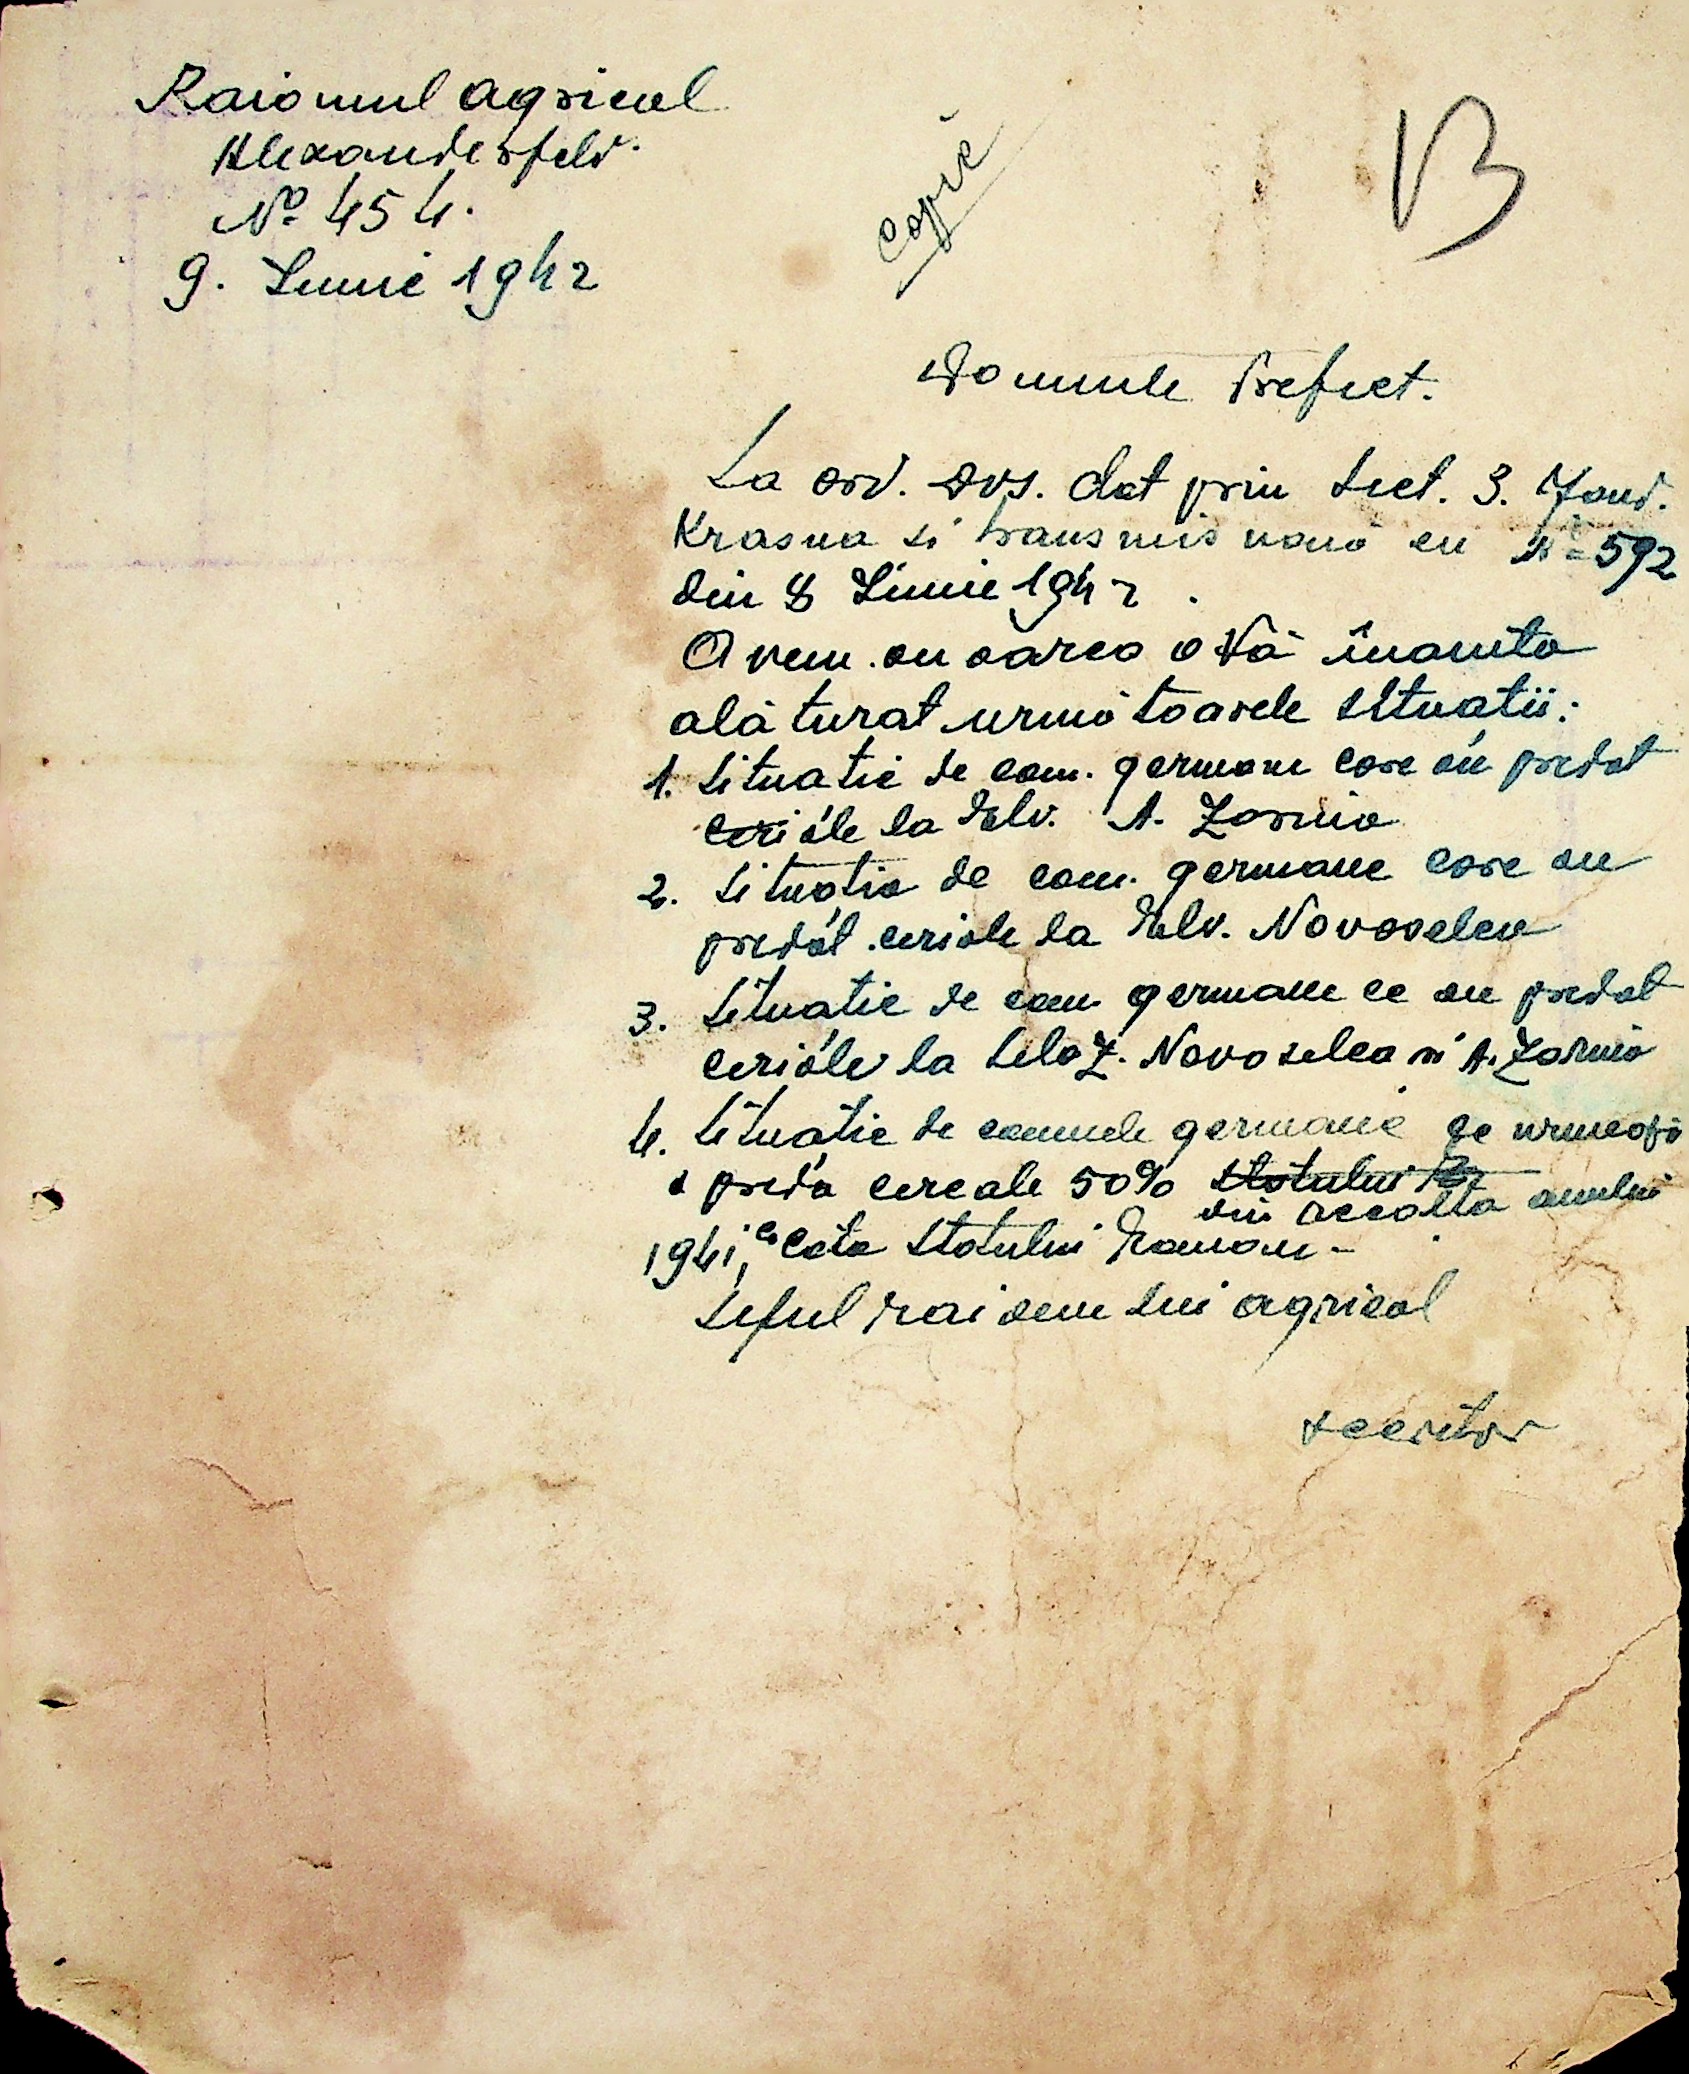 Raionul agricol
Alexanderfeld.
No 454.
9. Iunie 1942
Copie
13
Domnule Prefect.
La ord. Dvs. dat prin Sect. 3. Jand.
Krasna si transmis nouă cu No 592
din 8 Iunie 1942.
Avem onoarea a Vă înainta
alăturat următoarele situatii:
1. Situatie de com. germane care au predat
ceriale la Elv. A. Zarnia
2. Situatia de com. germane care au
predat ceriale la Elv. Novoselca
3. Situatie de com. germane ce au predat
ceriale la Novoselca si A. Zarnia
4. Situatie de comunele germane ce urmează
a preda cereale 50% Statului
din recolta anului
1941, cota Statului Roman.-
Seful raionului agricol